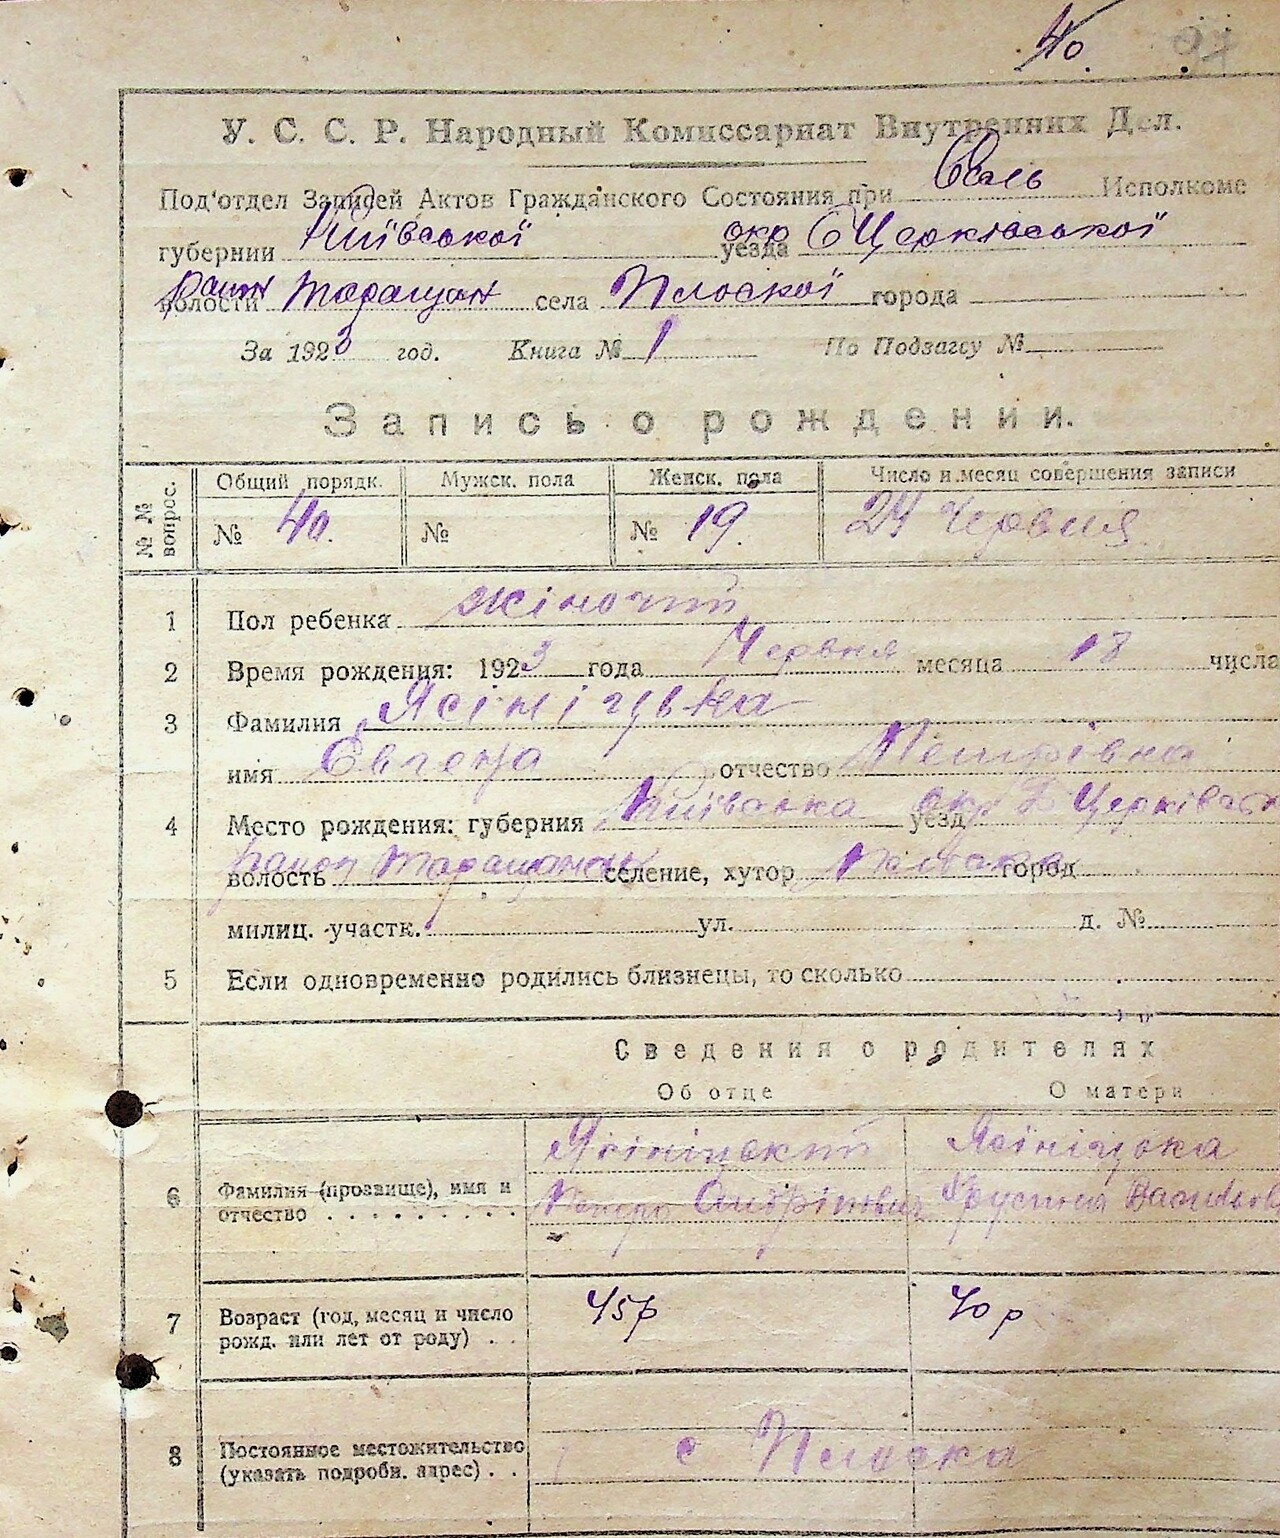 40.
97
У. С. С. Р. Народный Комиссариат Внутренних Дел.
Под'отдел Записей Актов Гражданского Состояния при Исполкоме
губернии Київської окр уезда БЦерківської
район волости Таращан села Плоскої города
За 1923 год. Книга № 1 По Подзагсу №
Запись о рождении.
№ № вопрос. Общий порядк. Мужск. пола Женск. пола Число и месяц совершения записи
№ 40. № № 19. 24 червня
1 Пол ребенка жіночий
2 Время рождения: 1923 года Червня месяца 18 числа
3 Фамилия Ясініцька
имя Євгенія отчество Петрівна
4 Место рождения: губерния Київська окр уезд БЦерківськ
район волость селение, хутор Плоска город
милиц. участк. ул. д. №
5 Если одновременно родились близнецы, то сколько
Сведения о родителях
Об отце О матери
Ясініцький Ясініцька
6 Фамилия (прозвище), имя и отчество Петро Андрійович
7 Возраст (год, месяц и число рожд. или лет от роду) 45р 40р
8 Постоянное местожительство (указать подробн. адрес) с Плоска